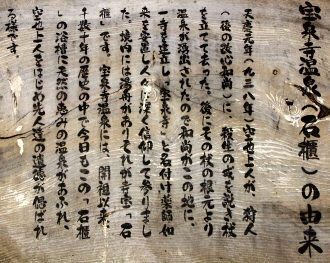 宝泉寺温泉(石櫃)の由来
天慶三年(九三八年)空也上人が、狩人
(後の改心和尚)に、殺生の戒を説き杖
を立てて去った。後にその杖の根元より
温泉が湧出されたので和尚がこの地に、
一寺を建立し「宝泉寺」と名付け薬師如
来を安置し人々に深く信仰して参りまし
た。境内には湯舟がありそれが幸宝「石
櫃」です。宝泉寺温泉には、開祖以来
千数十年の歴史の中で今日もこの「石櫃
」の浴槽に天然の恵みの温泉があふれ、
空也上人をはじめ先人達の遺徳が偲ばれ
る様です。